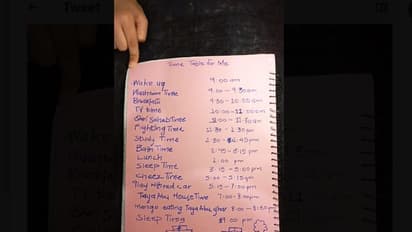 Tweet
Time Table for Me
Wake up 9:00 am
Washroom Time 9:00 - 9:30am
Breakfast 9:30 - 10:00am
TV time 10:00 - 11:00am
Qari Sahab Time 11:00 - 11:30am
Fighting Time 11:30 - 2:30pm
Study Time 2:30 - 2:45pm
Bath Time 2:45 - 3:15 pm
Lunch 3:00 pm
Sleep Time 3:15 - 5:00pm
Cheez Time 5:00 - 5:15pm
Play with red car 5:15 - 7:00pm
Taya Abu House Time 7:00 - 8:00pm
mango eating Taya Abu ghar 8:00 - 8:30pm
Sleep Time 9:00 pm